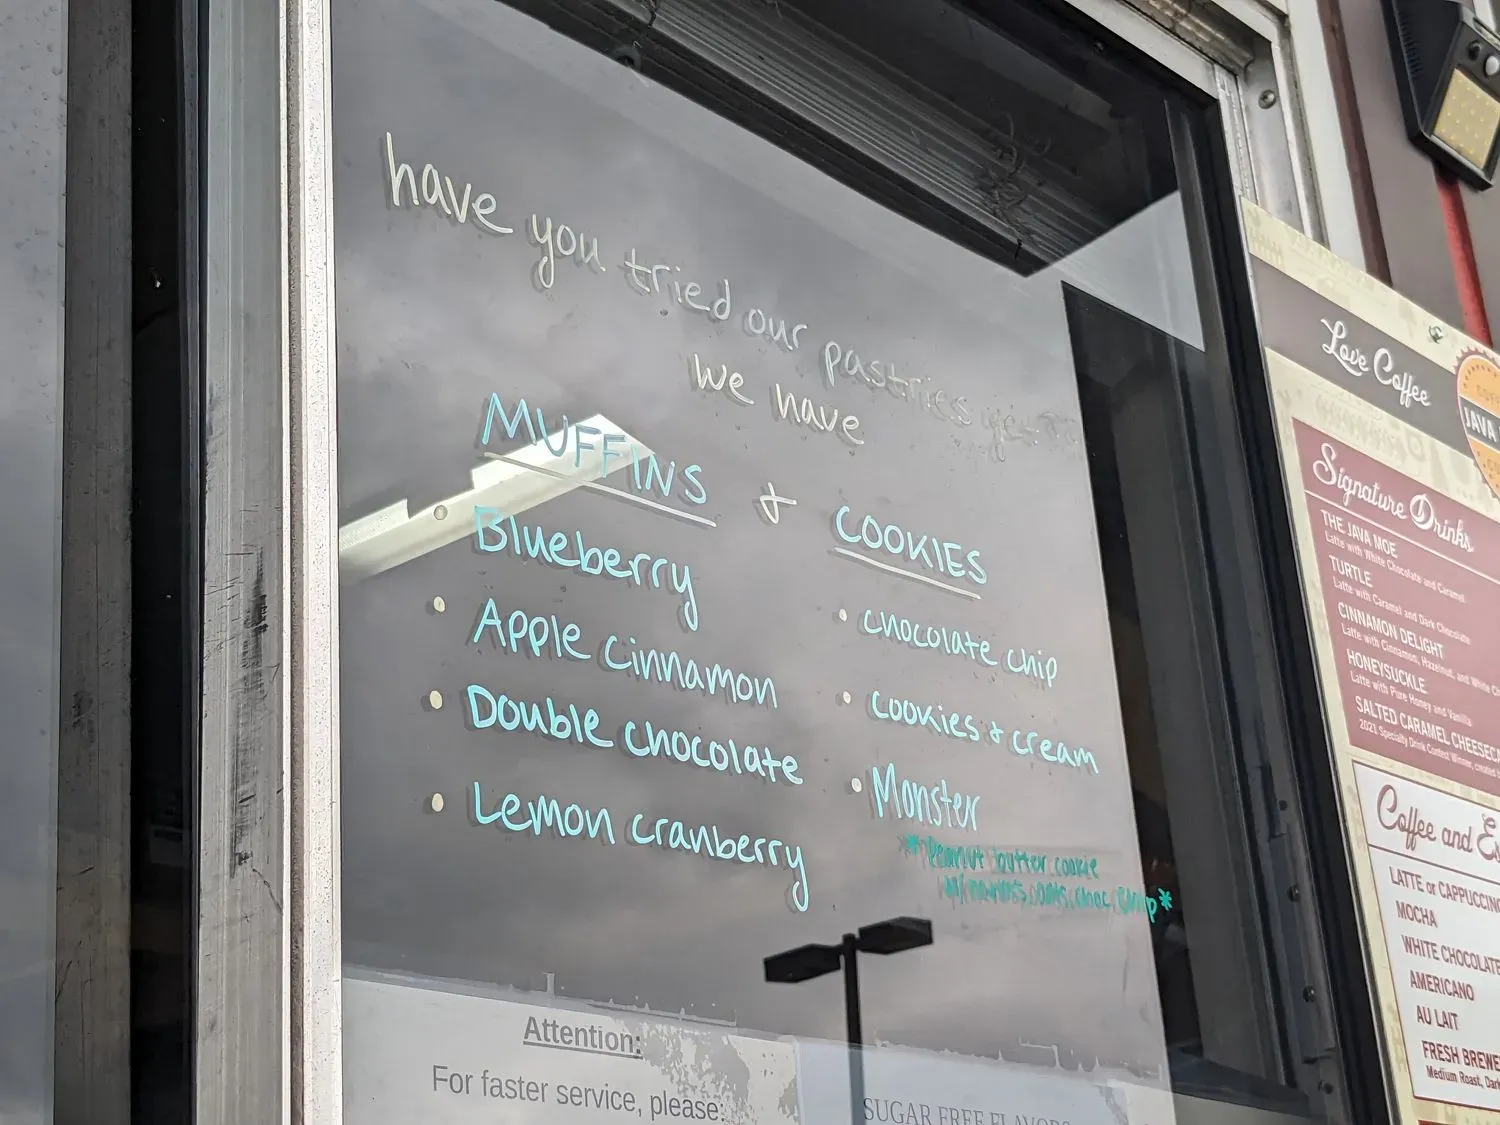 have you tried our pastries yet??
we have
MUFFINS & COOKIES
Blueberry
• Apple cinnamon
• Double chocolate
• Lemon cranberry
• chocolate chip
• cookies & cream
• Monster
*Peanut butter cookie
w/ choc. chip*
Attention:
For faster service, please:
SUGAR FREE FLAVORS
Love Coffee
JAVA
Signature Drinks
THE JAVA MOE
Latte with White Chocolate and Caramel
TURTLE
Latte with Caramel and Dark Chocolate
CINNAMON DELIGHT
Latte with Cinnamon, Hazelnut, and White
HONEYSUCKLE
Latte with Pure Honey and Vanilla
SALTED CARAMEL CHEESECA
2021 Specialty Drink Contest Winner, created
Coffee and Es
LATTE or CAPPUCCINO
MOCHA
WHITE CHOCOLATE
AMERICANO
AU LAIT
FRESH BREWE
Medium Roast, Dar